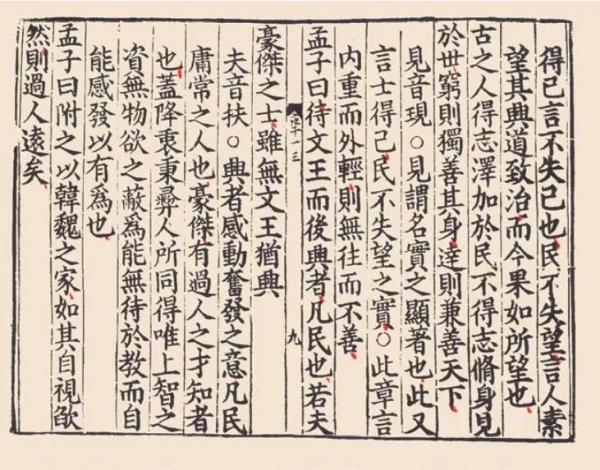 得己言不失己也民不失望言人素
望其興道致治而今果如所望也
古之人得志澤加於民不得志脩身見
於世窮則獨善其身達則兼善天下
見音現○見謂名實之顯著也此又
言士得己民不失望之實○此章言
內重而外輕則無往而不善
孟子曰待文王而後興者凡民也若夫
十三
九
豪傑之士雖無文王猶興
夫音扶○興者感動奮發之意凡民
庸常之人也豪傑有過人之才知者
也蓋降衷秉彝人所同得唯上智之
資無物欲之蔽爲能無待於教而自
能感發以有爲也
孟子曰附之以韓魏之家如其自視欿
然則過人遠矣